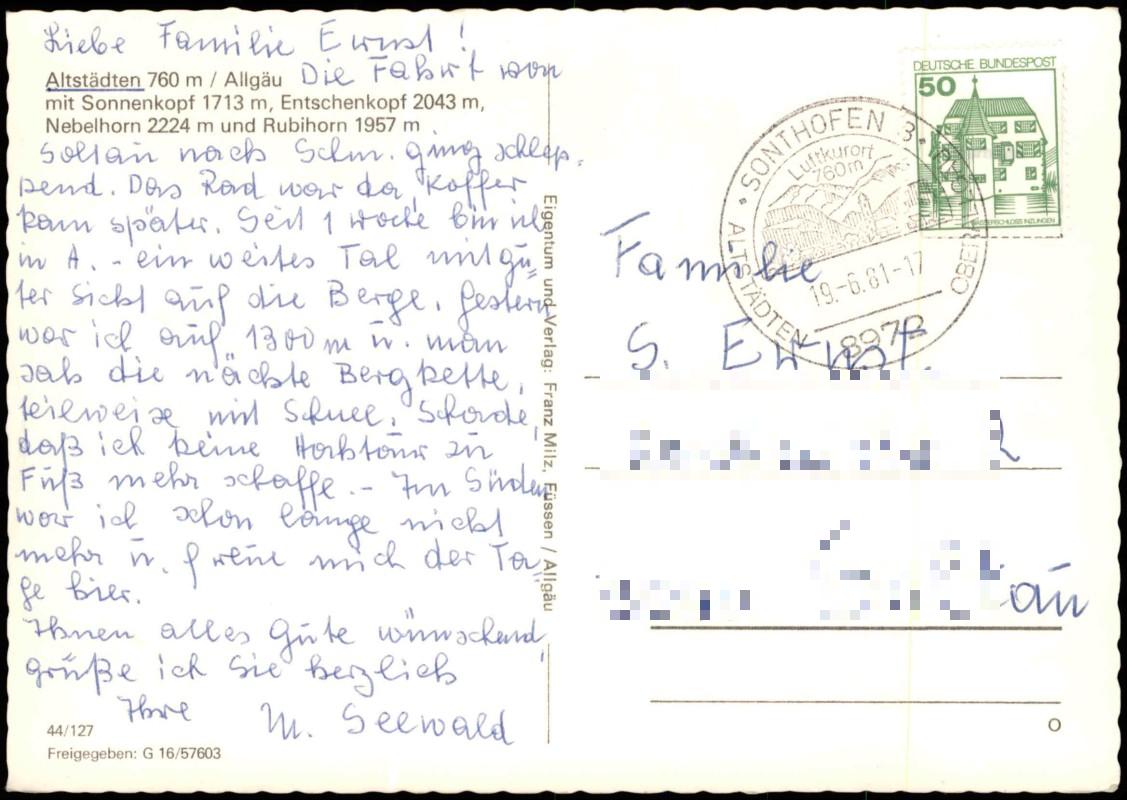 Liebe Familie Ernst!
Altstädten 760 m / Allgäu Die Fahrt von
mit Sonnenkopf 1713 m, Entschenkopf 2043 m,
Nebelhorn 2224 m und Rubihorn 1957 m
Soltau nach Schm. ging schlep-
pend. Das Rad war da, Koffer
kam später. Seit 1 Woche bin ich
in A. - ein weites Tal mit gu=
ter Sicht auf die Berge. Gestern
war ich auf 1300 m u. man
sah die nächste Bergkette,
teilweise mit Schnee. Schade,
daß ich keine Hochtour zu
Fuß mehr schaffe. - Im Süden
war ich schon lange nicht
mehr u. freue mich der Ta-
ge hier.
Ihnen alles Gute wünschend,
grüße ich Sie herzlich
Ihre M. Seewald
44/127
Freigegeben: G 16/57603
Eigentum und Verlag: Franz Milz, Füssen / Allgäu
DEUTSCHE BUNDESPOST
50
SONTHOFEN 3
Luftkurort
760m
19.-6.81-17
ALTSTÄDTEN
8972
Familie
S. Ernst.
au
O